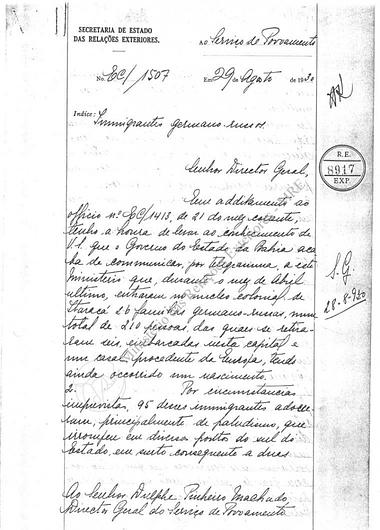 SECRETARIA DE ESTADO
DAS RELAÇÕES EXTERIORES.
Ao Serviço de Povoamento
No. EC/1507
Em 29 de Agosto de 1930
Indice: Immigrantes germano-russos.
R.E.
8917
EXP.
Senhor Director Geral,
Em additamento ao
officio nº EC/1413, de 21 do mez corrente,
tenho a honra de levar ao conhecimento de
V.S. que o Governo do Estado da Bahia aca-
ba de communicar, por telegramma, a este
Ministerio que, durante o mez de Abril
ultimo, entraram no nucleo colonial de
Itaracá 26 familias germano-russas, num
total de 210 pessoas, das quaes se retira-
ram seis, embarcadas nesta capital e
um casal procedente da Europa, tendo
ainda occorrido um nascimento.
2. Por circumstancias
imprevistas, 95 desses immigrantes adoece-
ram, principalmente de paludismo, que
irrompeu em diversos pontos do sul do
Estado, em surto consequente a duas
S.G.
28-8-930
Ao Senhor Dulphe Pinheiro Machado,
Director Geral do Serviço de Povoamento